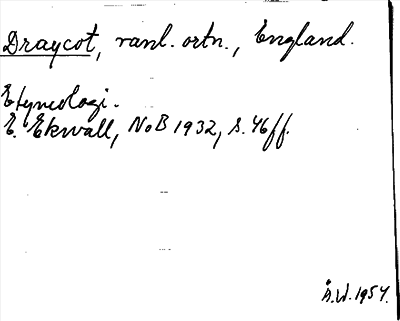 Draycot, vanl. ortn., England.
Etymologi.
E. Ekwall, NoB 1932, s. 46ff.
Å.W. 1954.